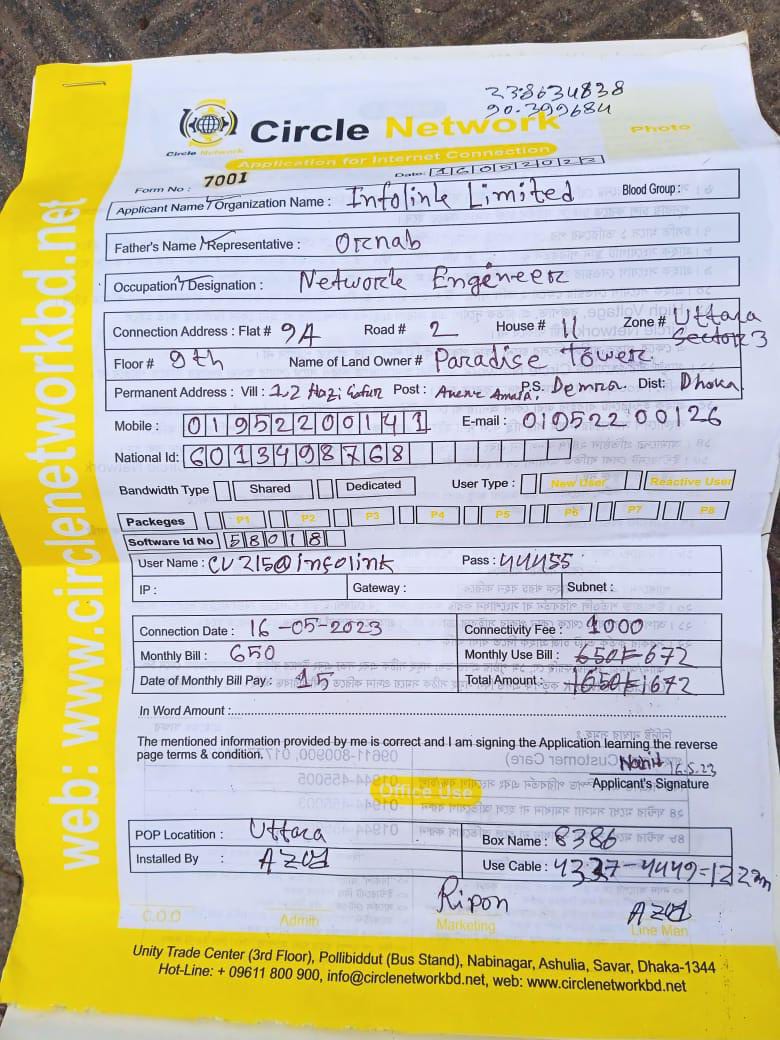 23.8634838
90.399684
Circle Network
Circle Network
Photo
Application for Internet Connection
Form No : 7001
Date: 16052023
Applicant Name / Organization Name : Infolink Limited Blood Group :
Father's Name / Representative : Ornab
Occupation / Designation : Network Engineer
Connection Address : Flat # 9A Road # 2 House # 11 Zone # Uttara
Sector 3
Floor # 9th Name of Land Owner # Paradise Tower
Permanent Address : Vill : Hazi Post : P.S. Demra Dist: Dhaka
Mobile : 01952200141 E-mail : 01952200126
National Id: 6013498768
Bandwidth Type Shared Dedicated User Type : New User Reactive User
Packeges P1 P2 P3 P4 P5 P6 P7 P8
Software Id No 58018
User Name : CV215@infolink Pass : 44455
IP : Gateway : Subnet :
Connection Date : 16-05-2023 Connectivity Fee : 1000
Monthly Bill : 650 Monthly Use Bill : 650 672
Date of Monthly Bill Pay : 15 Total Amount : 1650 1672
In Word Amount :
The mentioned information provided by me is correct and I am signing the Application learning the reverse
page terms & condition.
16.5.23
Applicant's Signature
Office Use
POP Locatition : Uttara Box Name : 8386
Installed By : Azad Use Cable : 4337-4449=122m
Ripon Azad
C.O.O Admin Marketing Line Man
Unity Trade Center (3rd Floor), Pollibiddut (Bus Stand), Nabinagar, Ashulia, Savar, Dhaka-1344
Hot-Line: + 09611 800 900, info@circlenetworkbd.net, web: www.circlenetworkbd.net
web: www.circlenetworkbd.net